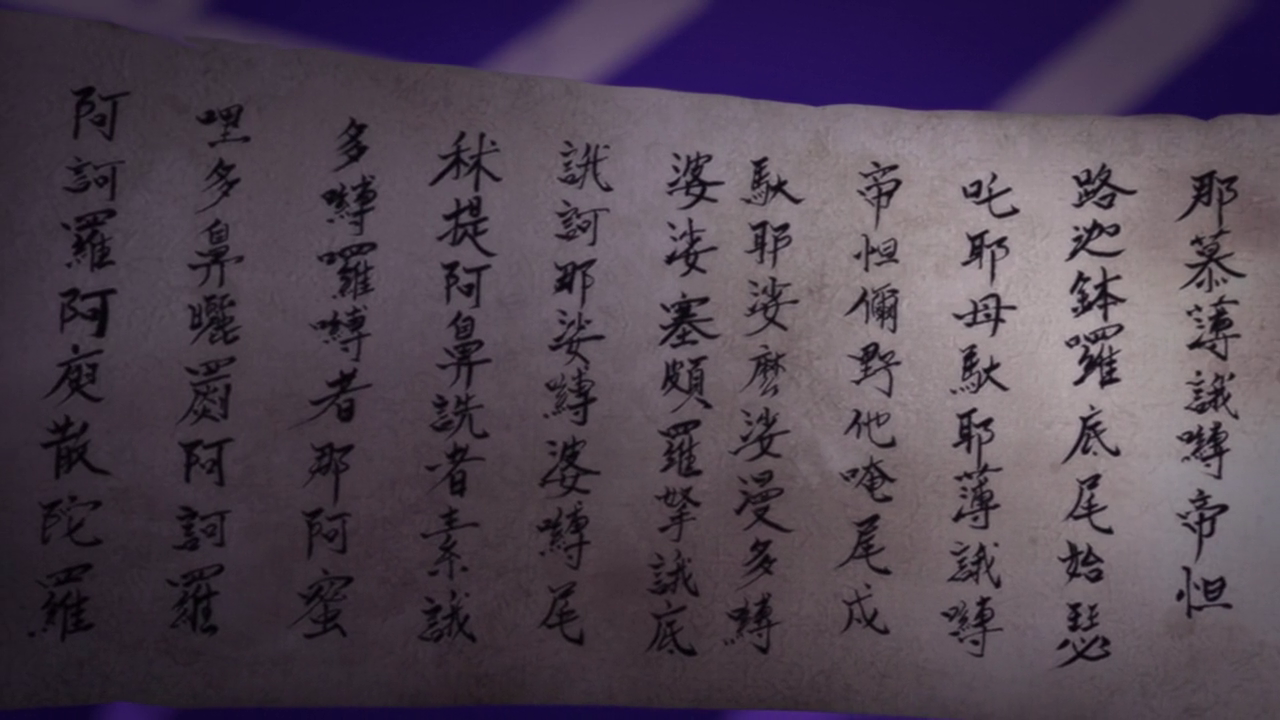 那慕薄誐嚩帝怛
路迦鉢囉底尾始瑟
吒耶母馱耶薄誐嚩
帝怛儞野他唵尾戍
馱耶娑麼娑曼多嚩
婆娑塞頗羅拏誐底
誐訶那娑嚩婆嚩尾
秫提阿鼻詵者素誐
多嚩囉嚩者那阿蜜
哩多鼻曬罽阿訶羅
阿訶羅阿庾散陀羅